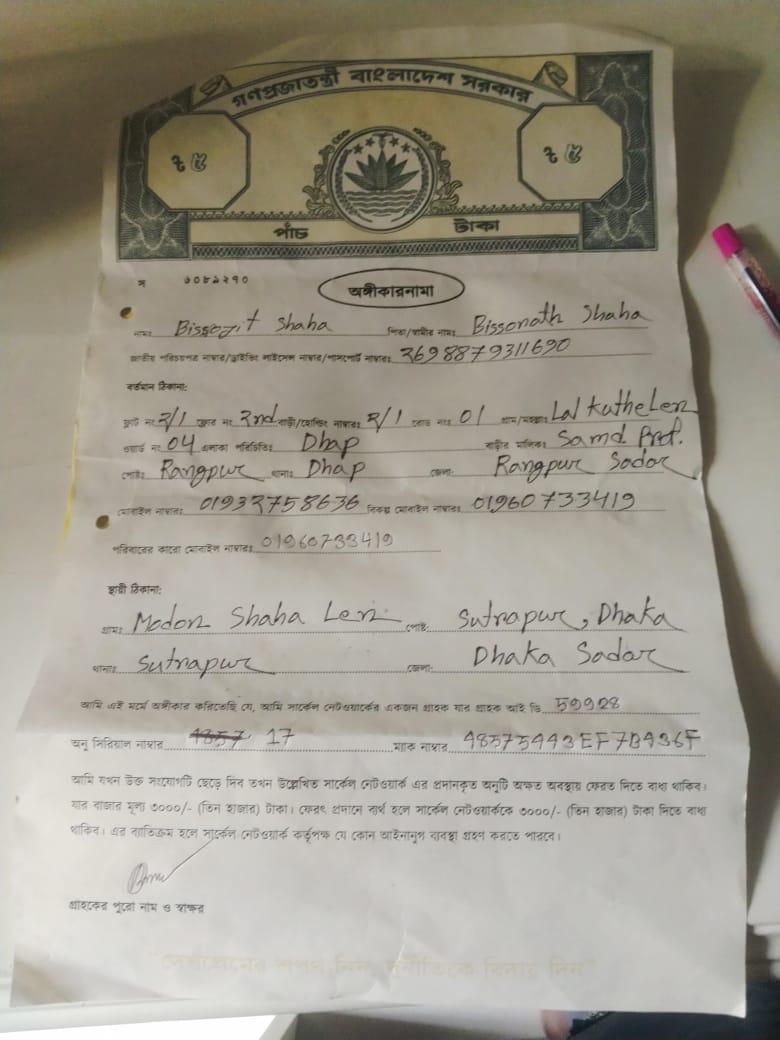 গণপ্রজাতন্ত্রী বাংলাদেশ সরকার
৳ ৫ ৳ ৫
পাঁচ টাকা
স ৬০৮৯২৭০
অঙ্গীকারনামা
নামঃ Bissojit Shaha পিতা/স্বামীর নামঃ Bissonath Shaha
জাতীয় পরিচয়পত্র নাম্বার/ড্রাইভিং লাইসেন্স নাম্বার/পাসপোর্ট নাম্বারঃ 2698879311690
বর্তমান ঠিকানা:
ফ্ল্যাট নং 2/1 ফ্লোর নং 2nd বাড়ী/হোল্ডিং নাম্বারঃ 2/1 রোড নংঃ 01 গ্রাম/মহল্লাঃ Lal Kuthe Len
ওয়ার্ড নং 04 এলাকা পরিচিতিঃ Dhap বাড়ীর মালিকঃ Samd Prof.
পোষ্টঃ Rangpur থানাঃ Dhap জেলা: Rangpur Sador
মোবাইল নাম্বারঃ 01932758636 বিকল্প মোবাইল নাম্বারঃ 01960733419
পরিবারের কারো মোবাইল নাম্বারঃ 01960733419
স্থায়ী ঠিকানা:
গ্রামঃ Modon Shaha Len পোষ্ট: Sutrapur, Dhaka
থানাঃ Sutrapur জেলা: Dhaka Sador
আমি এই মর্মে অঙ্গীকার করিতেছি যে, আমি সার্কেল নেটওয়ার্কের একজন গ্রাহক যার গ্রাহক আই ডি 59928
অনু সিরিয়াল নাম্বার 4857 17 ম্যাক নাম্বার 48575443EF7B436F
আমি যখন উক্ত সংযোগটি ছেড়ে দিব তখন উল্লেখিত সার্কেল নেটওয়ার্ক এর প্রদানকৃত অনুটি অক্ষত অবস্থায় ফেরত দিতে বাধ্য থাকিব।
যার বাজার মূল্য ৩০০০/- (তিন হাজার) টাকা। ফেরৎ প্রদানে ব্যর্থ হলে সার্কেল নেটওয়ার্ককে ৩০০০/- (তিন হাজার) টাকা দিতে বাধ্য
থাকিব। এর ব্যতিক্রম হলে সার্কেল নেটওয়ার্ক কর্তৃপক্ষ যে কোন আইনানুগ ব্যবস্থা গ্রহণ করতে পারবে।
গ্রাহকের পুরো নাম ও স্বাক্ষর
"দেশপ্রেমের শপথ নিন, দুর্নীতিকে বিদায় দিন"